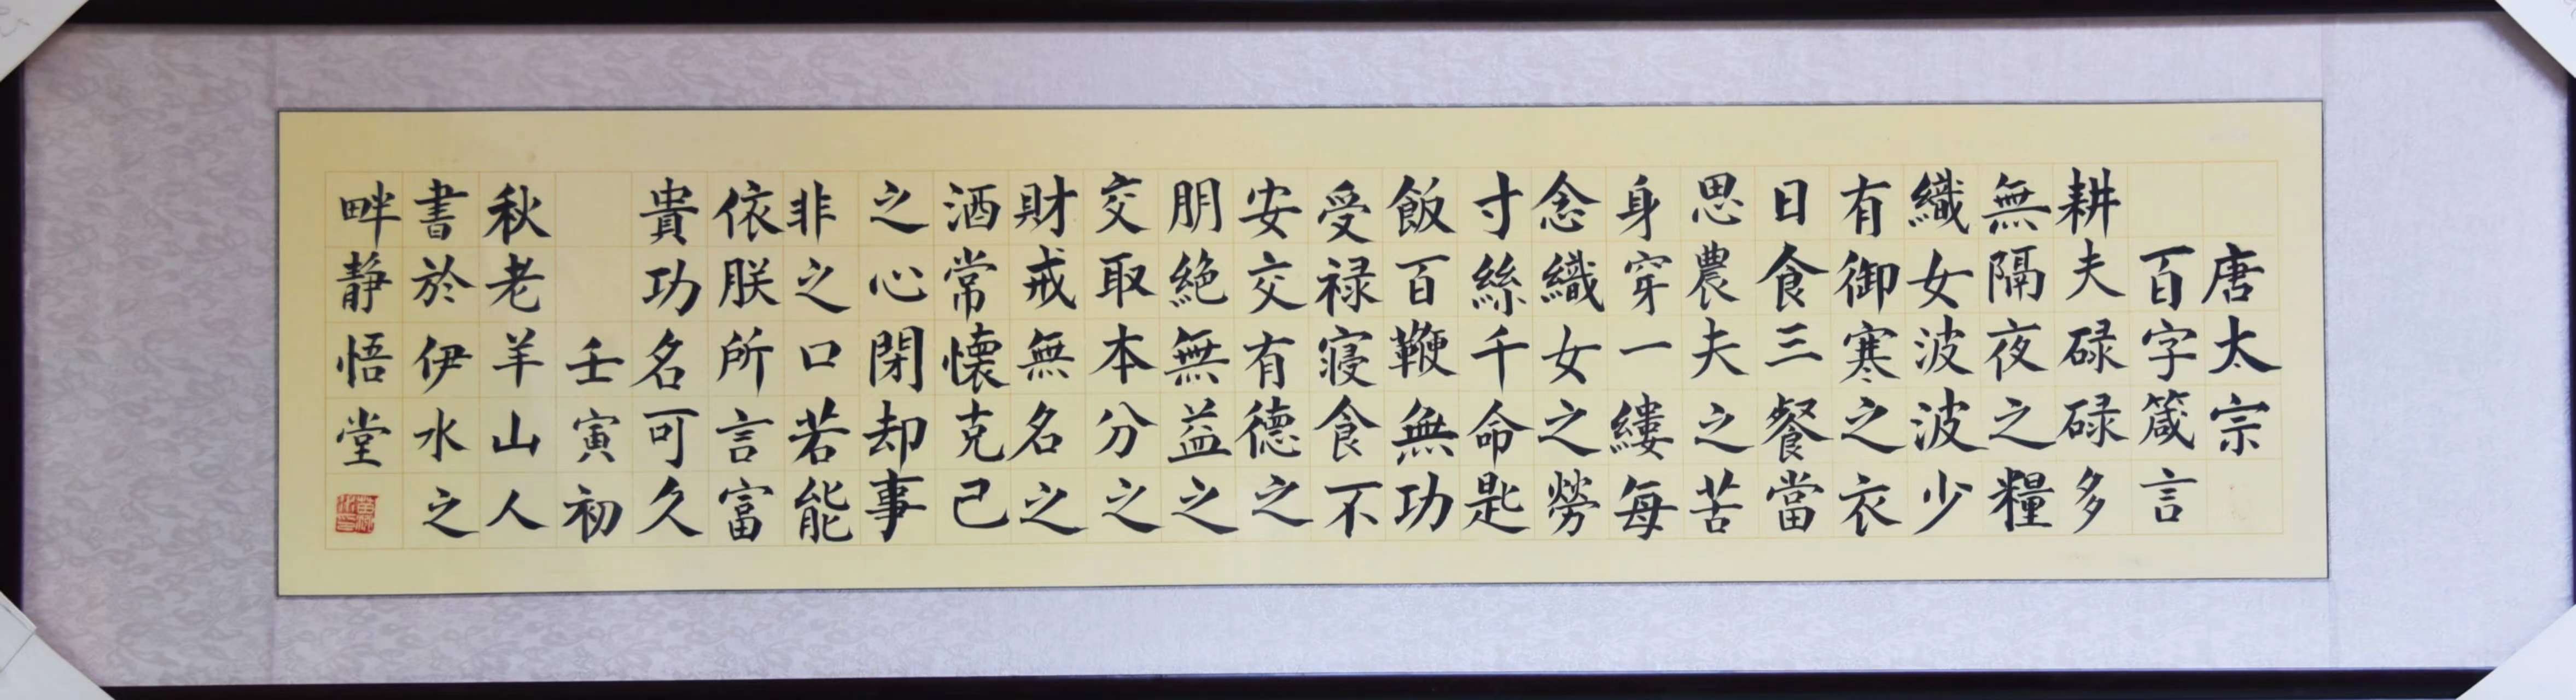 唐太宗
百字箴言
耕夫碌碌多
無隔夜之糧
織女波波少
有御寒之衣
日食三餐當
思農夫之苦
身穿一縷每
念織女之勞
寸絲千命匙
飯百鞭無功
受禄寢食不
安交有德之
朋絕無益之
交取本分之
財戒無名之
酒常懷克己
之心閉却事
非之口若能
依朕所言富
貴功名可久
壬寅初
秋老羊山人
書於伊水之
畔静悟堂